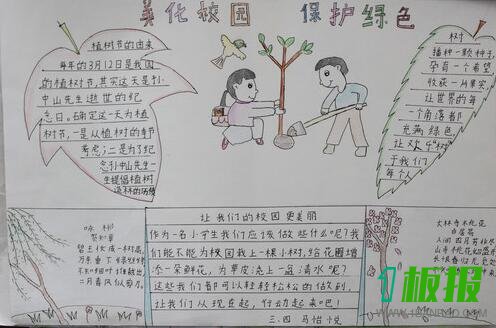 美化校园 保护绿色
植树节的由来
每年的3月12日是我国
的植树节,其实这天是孙
中山先生逝世的纪
念日。确定这一天为植
树节,一是从植树的季节
考虑;二是为了纪
念孙中山先生一
生提倡植树
造林的功绩
树
播种一颗种子,
孕育一个希望
收获一片果实,
让世界的每
一个角落都
充满绿色,
让欢乐"树"
于我们
每个人
咏柳
贺知章
碧玉妆成一树高,
万条垂下绿丝绦
不知细叶谁裁出,
二月春风似剪刀。
让我们的校园更美丽
作为一名小学生我们应该做些什么呢?我
们能不能为校园栽上一棵小树,给花圃增
添一朵鲜花,为草皮浇上一盆清水呢?
这些我们都可以轻轻松松的做到,
让我们从现在起,行动起来吧!
三、四 马怡悦
大林寺桃花
白居易
人间四月芳菲尽
山寺桃花
长恨春归
1板报